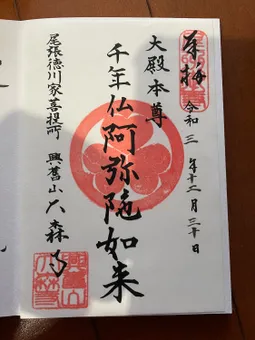 奉拝
令和三年十二月三十日
大殿本尊
千年仏阿弥陀如来
尾張徳川家菩提所 興旧山大森寺